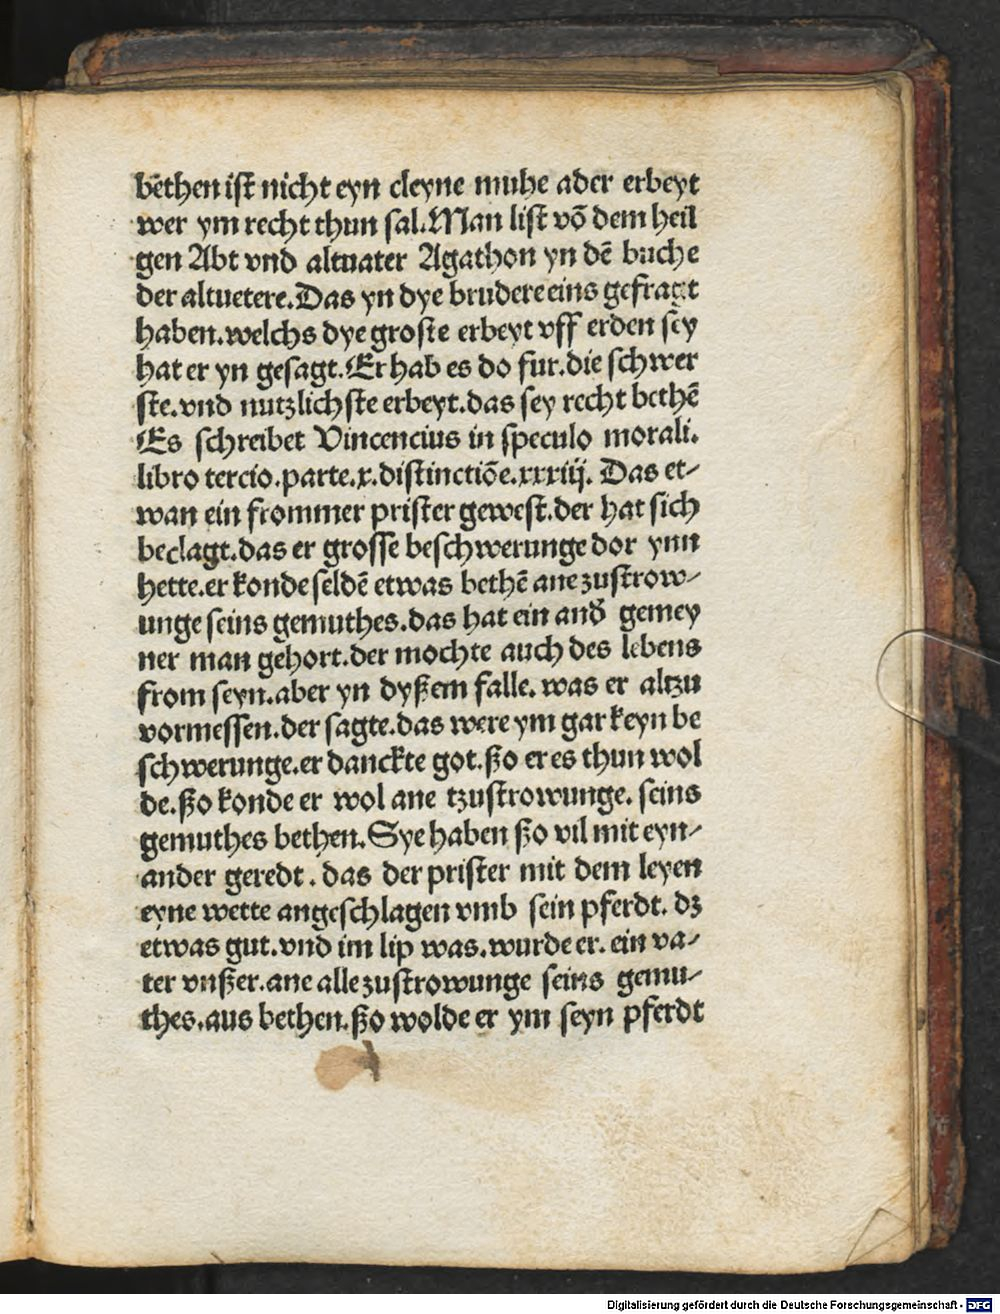 bēthen iſt nicht eyn cleyne muhe ader erbeyt
wer ym recht thun ſal. Man liſt võ dem heil
gen Abt vnd altuater Agathon yn dē buche
der altuetere. Das yn dye brudere eins gefragt
haben. welchs dye groſte erbeyt vff erden ſey
hat er yn geſagt. Er hab es do fur. die ſchwer
ſte. vnd nutzlichſte erbeyt. das ſey recht bethē
Es ſchreibet Vincencius in ſpeculo morali.
libro tercio. parte. x. diſtinctiōe. xxxiij. Das et⸗
wan ein frommer priſter geweſt. der hat ſich
beclagt. das er groſſe beſchwerunge dor ynn
hette. er konde ſeldē etwas bethē ane zuſtrow⸗
unge ſeins gemuthes. das hat ein and̕ gemey
ner man gehort. der mochte auch des lebens
from ſeyn. aber yn dyßem falle. was er altzu
vormeſſen. der ſagte. das were ym gar keyn be
ſchwerunge. er danckte got. ßo er es thun wol
de. ßo konde er wol ane tzuſtrowunge. ſeins
gemuthes bethen. Sye haben ßo vil mit eyn⸗
ander geredt. das der priſter mit dem leyen
eyne wette angeſchlagen vmb ſein pferdt. dz
etwas gut. vnd im lip was. wurde er. ein va⸗
ter vnßer. ane alle zuſtrowunge ſeins gemu⸗
thes. aus bethen. ßo wolde er ym ſeyn pferdt
Digitalisierung gefördert durch die Deutsche Forschungsgemeinschaft - DFG